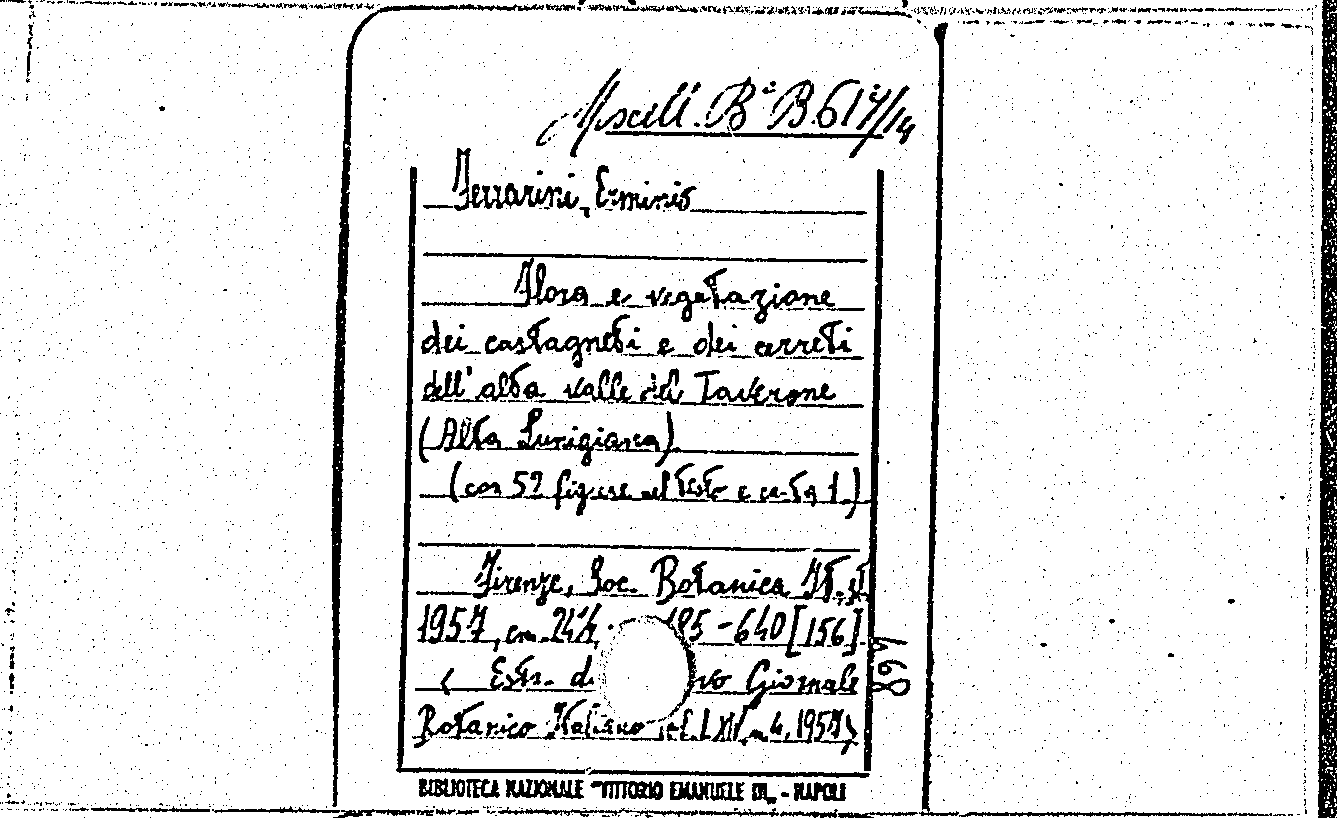 Miscell. Bª B.617/14
Ferrarini, Erminio
Flora e vegetazione
dei castagneti e dei cerreti
dell'alta valle del Taverone
(Alta Lunigiana).
(con 52 figure nel testo e carta 1.)
Firenze, Soc. Botanica It.
1957, cm. 24½, 485-640 [156].
< Estr. d. Giornale
Botanico Italiano vol. LXIV, n. 4, 1957>
BIBLIOTECA NAZIONALE "VITTORIO EMANUELE III" - NAPOLI